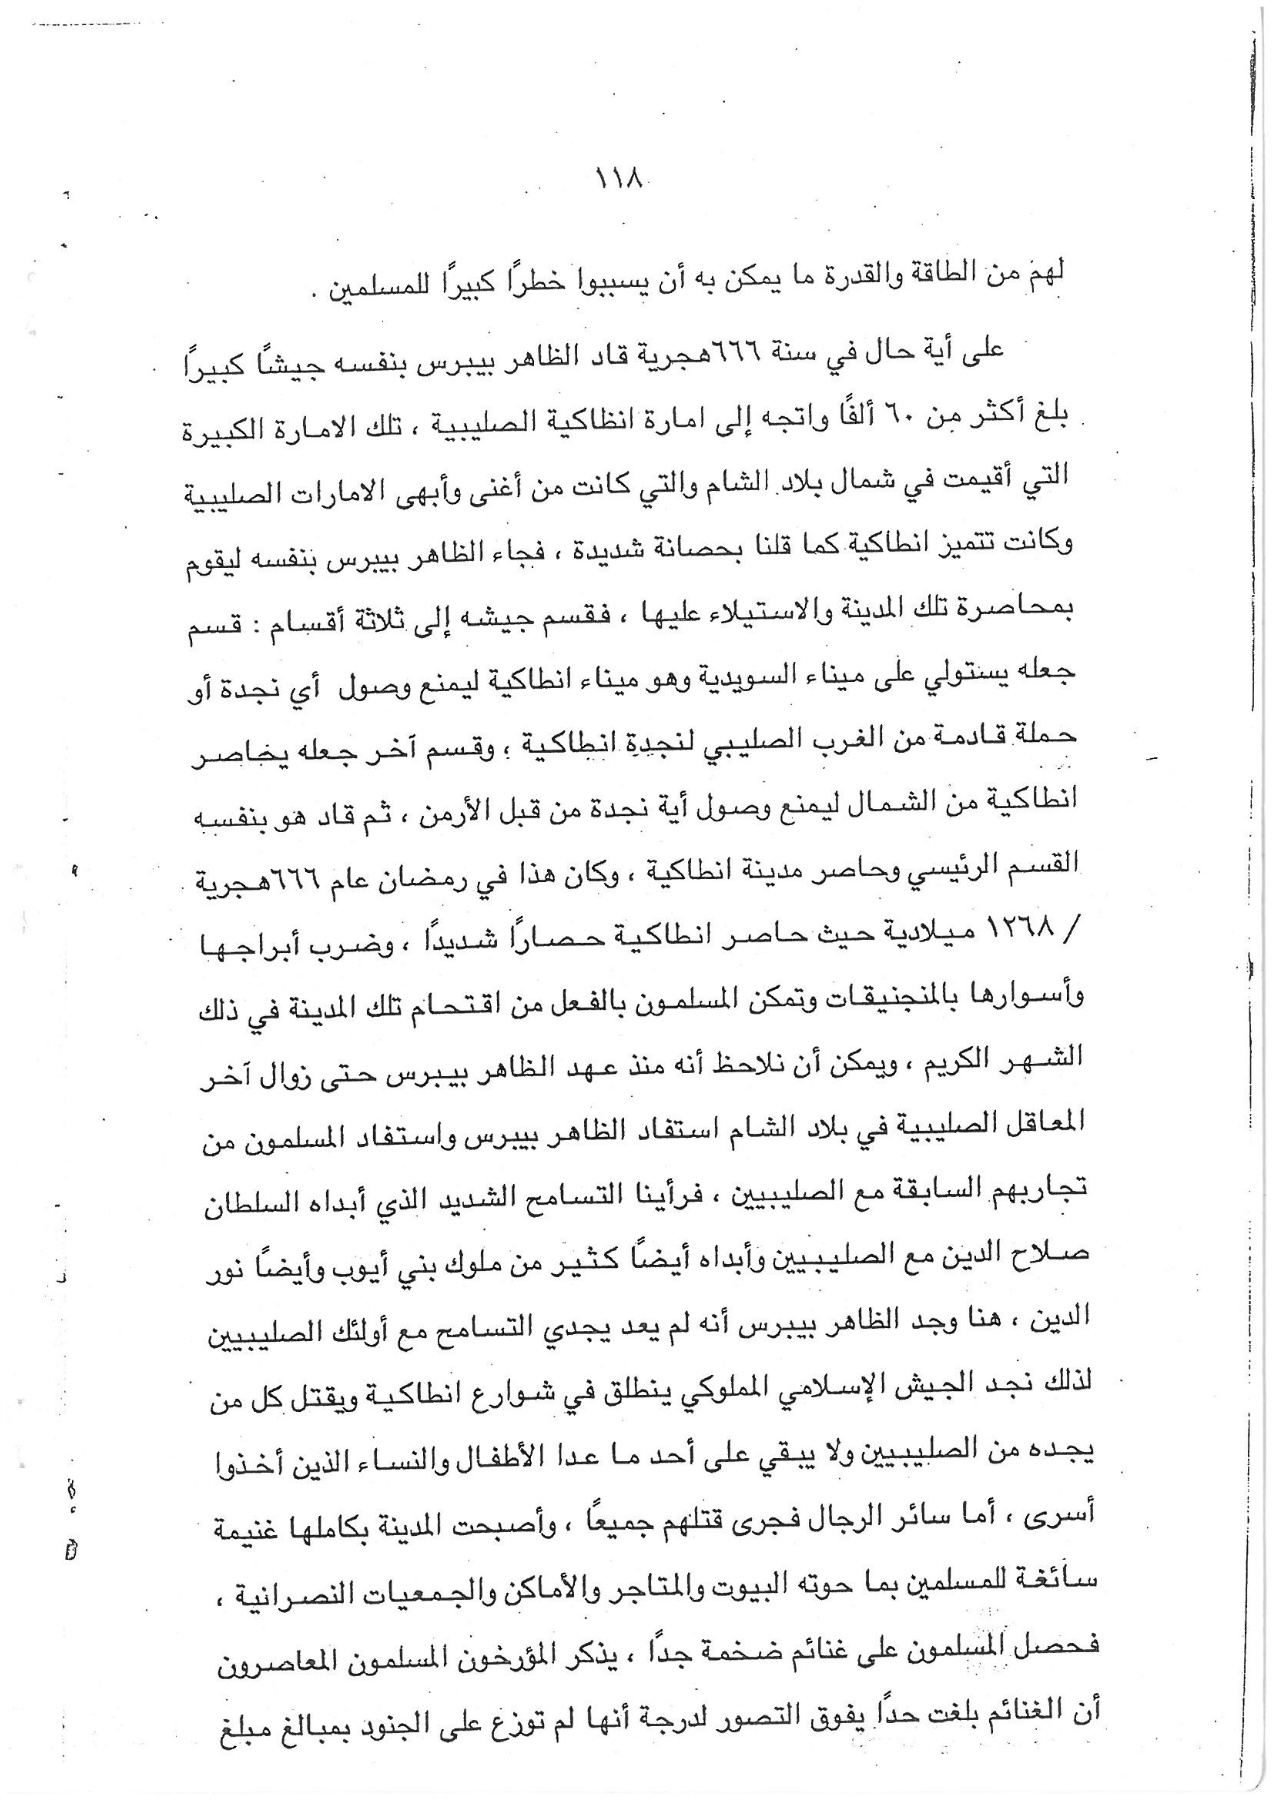 ١١٨
لهم من الطاقة والقدرة ما يمكن به أن يسببوا خطرًا كبيرًا للمسلمين .
على أية حال في سنة ٦٦٦هجرية قاد الظاهر بيبرس بنفسه جيشًا كبيرًا
بلغ أكثر من ٦٠ ألفًا واتجه إلى امارة انظاكية الصليبية ، تلك الامارة الكبيرة
التي أقيمت في شمال بلاد الشام والتي كانت من أغنى وأبهى الامارات الصليبية
وكانت تتميز انطاكية كما قلنا بحصانة شديدة ، فجاء الظاهر بيبرس بنفسه ليقوم
بمحاصرة تلك المدينة والاستيلاء عليها ، فقسم جيشه إلى ثلاثة أقسام : قسم
جعله يستولي على ميناء السويدية وهو ميناء انطاكية ليمنع وصول أي نجدة أو
حملة قادمة من الغرب الصليبي لنجدة انطاكية ، وقسم آخر جعله يحاصر
انطاكية من الشمال ليمنع وصول أية نجدة من قبل الأرمن ، ثم قاد هو بنفسه
القسم الرئيسي وحاصر مدينة انطاكية ، وكان هذا في رمضان عام ٦٦٦هجرية
/ ١٢٦٨ ميلادية حيث حاصر انطاكية حصارًا شديدًا ، وضرب أبراجها
وأسوارها بالمنجنيقات وتمكن المسلمون بالفعل من اقتحام تلك المدينة في ذلك
الشهر الكريم ، ويمكن أن نلاحظ أنه منذ عهد الظاهر بيبرس حتى زوال آخر
المعاقل الصليبية في بلاد الشام استفاد الظاهر بيبرس واستفاد المسلمون من
تجاربهم السابقة مع الصليبيين ، فرأينا التسامح الشديد الذي أبداه السلطان
صلاح الدين مع الصليبيين وأبداه أيضًا كثير من ملوك بني أيوب وأيضًا نور
الدين ، هنا وجد الظاهر بيبرس أنه لم يعد يجدي التسامح مع أولئك الصليبيين
لذلك نجد الجيش الإسلامي المملوكي ينطلق في شوارع انطاكية ويقتل كل من
يجده من الصليبيين ولا يبقي على أحد ما عدا الأطفال والنساء الذين أخذوا
أسرى ، أما سائر الرجال فجرى قتلهم جميعًا ، وأصبحت المدينة بكاملها غنيمة
سائغة للمسلمين بما حوته البيوت والمتاجر والأماكن والجمعيات النصرانية ،
فحصل المسلمون على غنائم ضخمة جدًا ، يذكر المؤرخون المسلمون المعاصرون
أن الغنائم بلغت حدًا يفوق التصور لدرجة أنها لم توزع على الجنود بمبالغ مبلغ